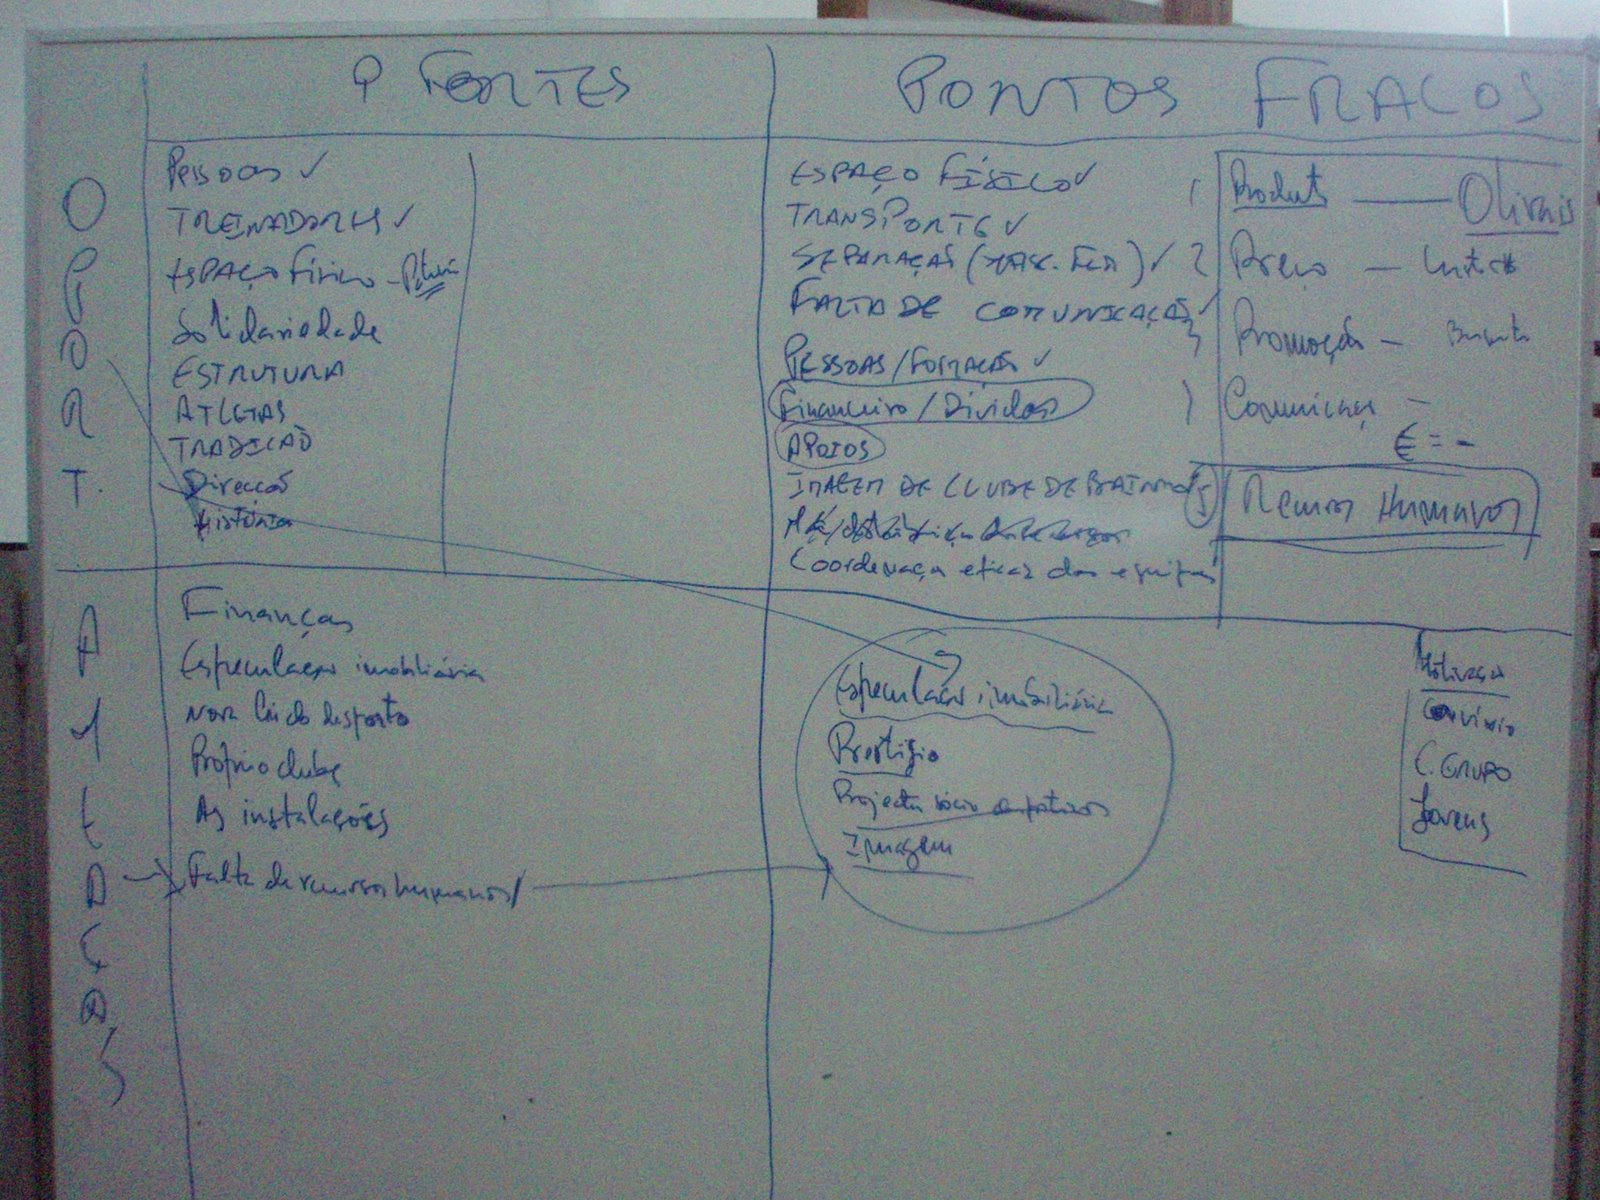 P FORTES
PONTOS FRACOS
OPORT.
Pessoas ✓
TREINADORES ✓
ESPAÇO Físico -
Solidariedade
ESTRUTURA
ATLETAS
TRADIÇÃO
Direcção
História
ESPAÇO FÍSICO ✓
TRANSPORTE ✓
SEPARAÇÃO (MASC. FEM) ✓
FALTA DE COMUNICAÇÃO ✓
PESSOAS/FORMAÇÃO ✓
Financeiro/Dívidas
APOIOS
IMAGEM DE CLUBE DE BAIRRO
Coordenação eficaz das equipas
1 Produto — Olivais
2 Preço —
3 Promoção —
Comunicação -
€ = -
5 Recursos Humanos
AMEAÇAS
Finanças
Especulação imobiliária
Nova Lei do desporto
Próprio clube
As instalações
Falta de recursos humanos
Especulação imobiliária
Prestígio
Projectos sócio desportivos
Imagem
Motivação
Convívio
C. GRUPO
Jovens